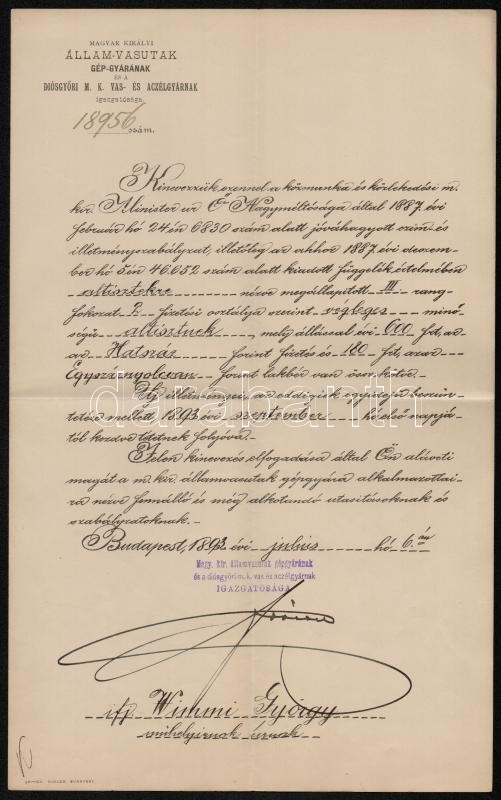 MAGYAR KIRÁLYI
ÁLLAM-VASUTAK
GÉP-GYÁRÁNAK
ÉS A
DIÓSGYŐRI M. K. VAS- ÉS ACZÉLGYÁRNAK
igazgatósága.
18956 szám.
Kinevezzük ezennel a közmunka és közlekedési m.
kir. Minister ur Ő Nagyméltósága által 1887. évi
február hó 24én 6830 szám alatt jóváhagyott szolg. és
illetményszabályzat, illetőleg az ahhoz 1887. évi deczem-
ber hó 5én 46.652 szám alatt kiadott függelék értelmében
altisztekre nézve megállapitott III rang-
fokozat 2. fizetési osztálya szerint végleges minő-
ségü altisztnek, mely állással évi 600 frt, az-
az Hatszáz forint fizetés és 180 frt, azaz
Egyszáznyolczvan forint lakbér van összekötve.
Uj illetményei, az eddigiek egyidejü beszün-
tetése mellett 1893 évi szeptember hó első napjá-
tól kezdve tétetnek folyóvá.
Jelen kinevezés elfogadása által Ön aláveti
magát a m. kir. államvasutak gépgyára alkalmazottai-
ra nézve fennálló és még alkotandó utasitásoknak és
szabályzatoknak.
Budapest, 1893 évi julius hó 6.án
Magy. kir. államvasutak gépgyárának
és a diósgyőri m. k. vas és aczélgyárnak
IGAZGATÓSÁGA
ifj Wimmi György
műhelyirnok urnak
darabanth